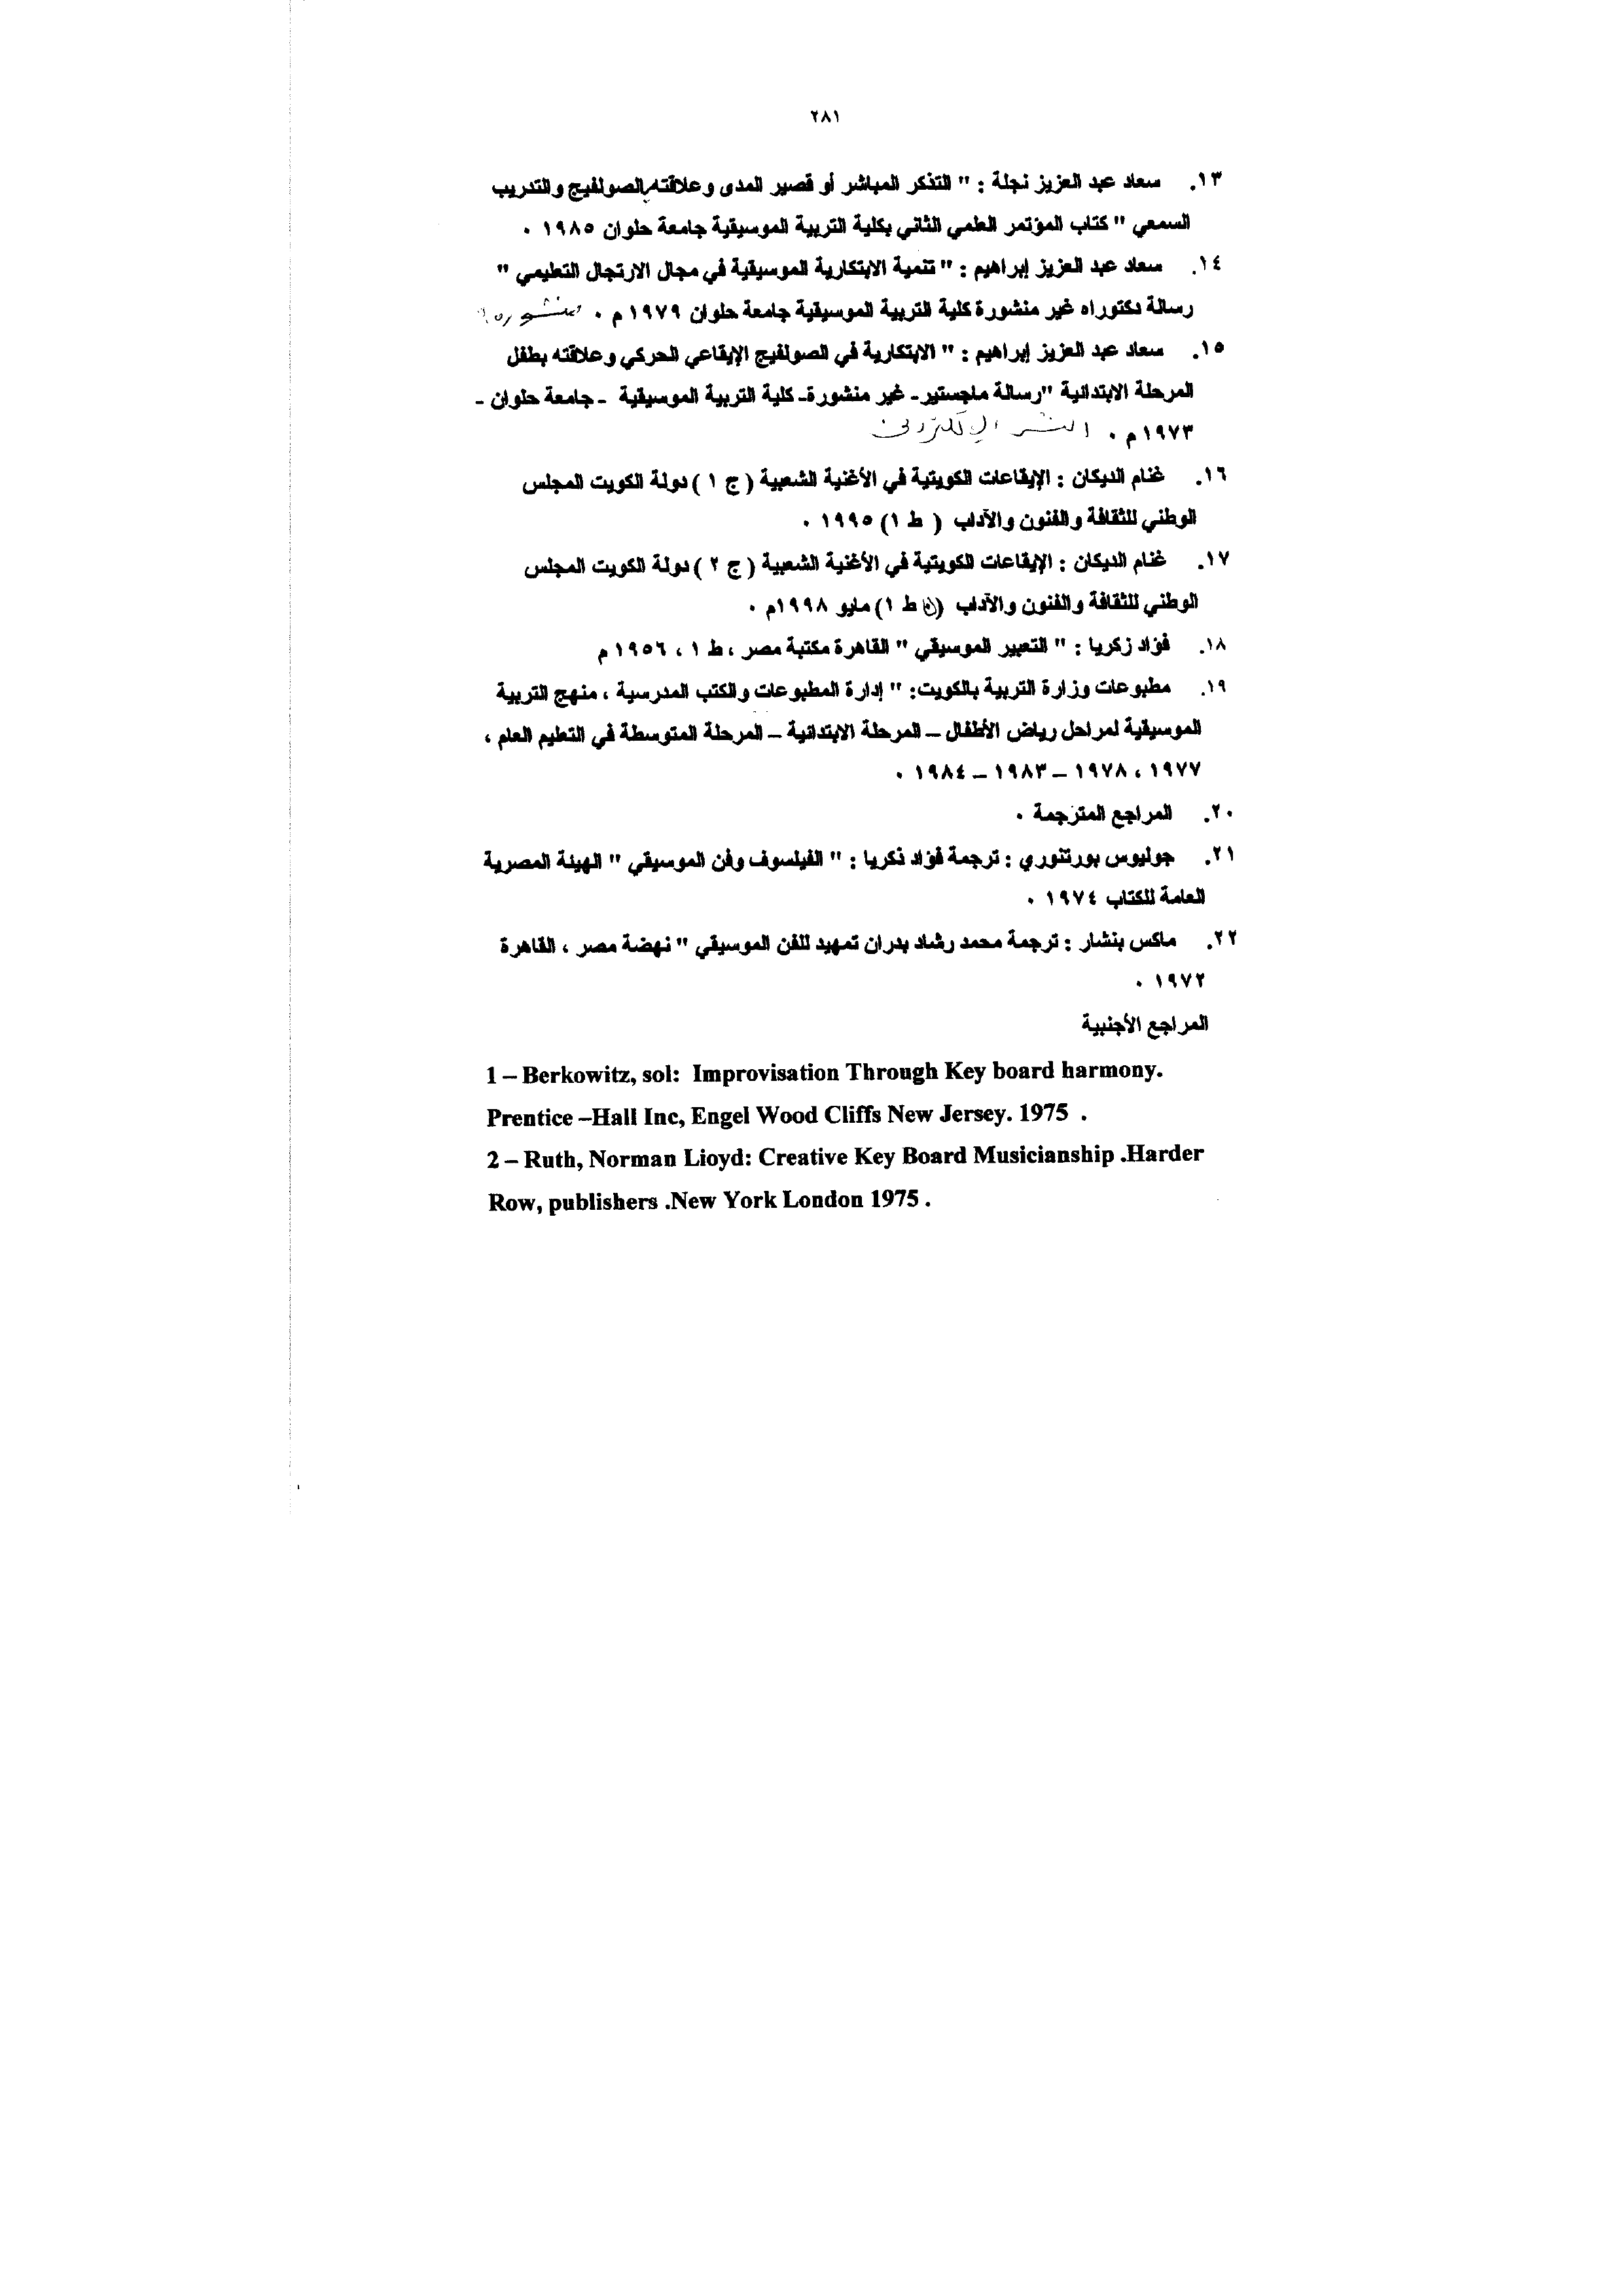 ٢٨١
١٣. سعاد عبد العزيز نجلة : " التذكر المباشر أو قصير المدى وعلاقته بالصولفيج والتدريب
السمعي " كتاب المؤتمر العلمي الثاني بكلية التربية الموسيقية جامعة حلوان ١٩٨٥ ٠
١٤. سعاد عبد العزيز إبراهيم : " تنمية الابتكارية الموسيقية في مجال الارتجال التعليمي "
رسالة دكتوراه غير منشورة كلية التربية الموسيقية جامعة حلوان ١٩٧٩ م ٠ منشورة
١٥. سعاد عبد العزيز إبراهيم : " الابتكارية في الصولفيج الإيقاعي الحركي وعلاقته بطفل
المرحلة الابتدائية "رسالة ماجستير- غير منشورة- كلية التربية الموسيقية - جامعة حلوان -
١٩٧٣ م ٠ النشر الإلكتروني
١٦. غنام الديكان : الإيقاعات الكويتية في الأغنية الشعبية ( ج ١ ) دولة الكويت المجلس
الوطني للثقافة والفنون والآداب ( ط ١) ١٩٩٥ ٠
١٧. غنام الديكان : الإيقاعات الكويتية في الأغنية الشعبية ( ج ٢ ) دولة الكويت المجلس
الوطني للثقافة والفنون والآداب ( ط ١) مايو ١٩٩٨م ٠
١٨. فؤاد زكريا : " التعبير الموسيقي " القاهرة مكتبة مصر ، ط ١ ، ١٩٥٦ م
١٩. مطبوعات وزارة التربية بالكويت: " إدارة المطبوعات والكتب المدرسية ، منهج التربية
الموسيقية لمراحل رياض الأطفال – المرحلة الابتدائية – المرحلة المتوسطة في التعليم العام ،
١٩٧٧ ، ١٩٧٨ – ١٩٨٣ – ١٩٨٤ ٠
٢٠. المراجع المترجمة ٠
٢١. جوليوس بورتنوري : ترجمة فؤاد ذكريا : " الفيلسوف وفن الموسيقي " الهيئة المصرية
العامة للكتاب ١٩٧٤ ٠
٢٢. ماكس بنشار : ترجمة محمد رشاد بدران تمهيد للفن الموسيقي " نهضة مصر ، القاهرة
١٩٧٢ ٠
المراجع الأجنبية
1 – Berkowitz, sol: Improvisation Through Key board harmony.
Prentice –Hall Inc, Engel Wood Cliffs New Jersey. 1975 .
2 – Ruth, Norman Lioyd: Creative Key Board Musicianship .Harder
Row, publishers .New York London 1975 .